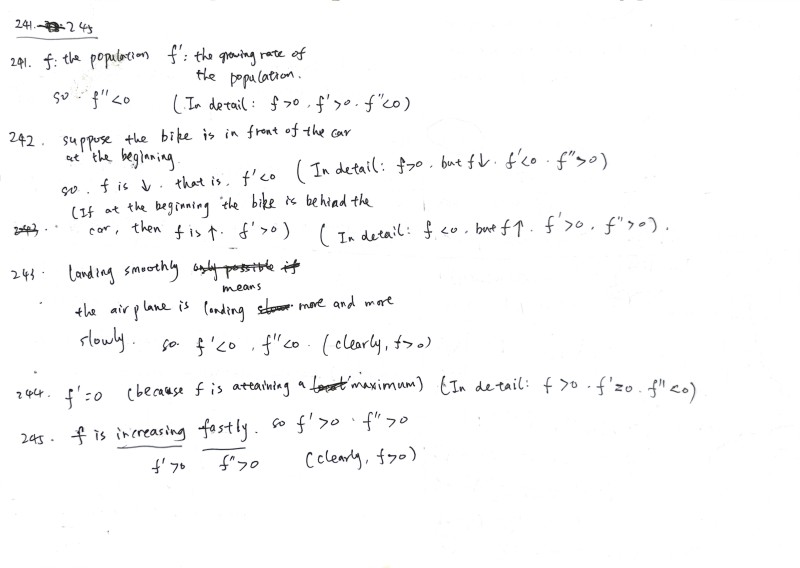 241. - 245
241. f: the population f': the growing rate of
the population.
so f''<0 (In detail: f>0. f'>0. f''<0)
242. suppose the bike is in front of the car
at the beginning.
so. f is ↓. that is. f'<0 (In detail: f>0. but f↓. f'<0. f''>0)
(If at the beginning the bike is behind the
car, then f is ↑. f'>0) (In detail: f<0. but f↑. f'>0. f''>0).
243. landing smoothly only possible if
means
the airplane is landing more and more
slowly. so. f'<0. f''<0. (clearly, f>0)
244. f'=0 (because f is attaining a local maximum) (In detail: f>0. f'=0. f''<0)
245. f is increasing fastly. so f'>0. f''>0
f'>0 f''>0 (clearly, f>0)